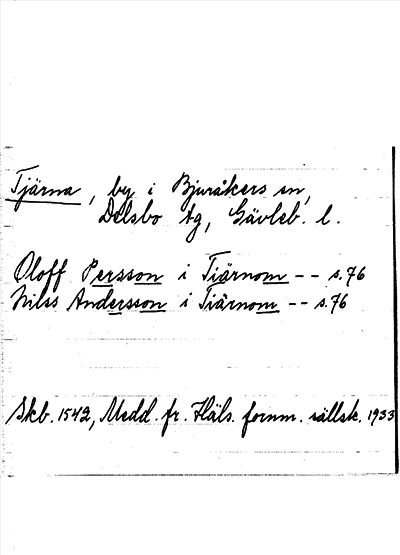 Tjärna, by i Bjuråkers sn,
Delsbo tg, Gävleb. l.
Oloff Persson i Tiärnom -- s.76
Nilss Andersson i Tiärnom -- s.76
Skb. 1542, Medd. fr. Häls. fornm. sällsk. 1933